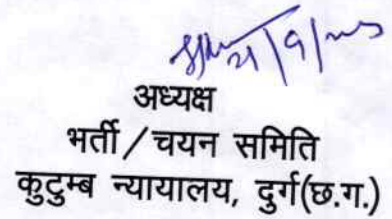 अध्यक्ष
भर्ती / चयन समिति
कुटुम्ब न्यायालय, दुर्ग(छ.ग.)